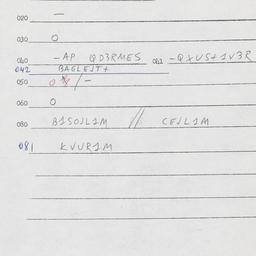 020 —
030 0
040 -AP QD3RMES 041 -QXUS+1V3R
042 BAGLEJT+
050 0 / -
060 0
080 B1SOJL1M // CEJL1M
081 KVUR1M